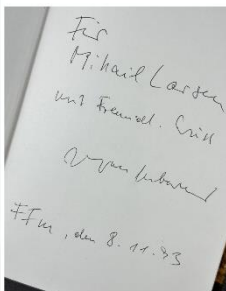 Für
Mihail Larsen
mit freundl. Gruß
FFm, den 8.11.93